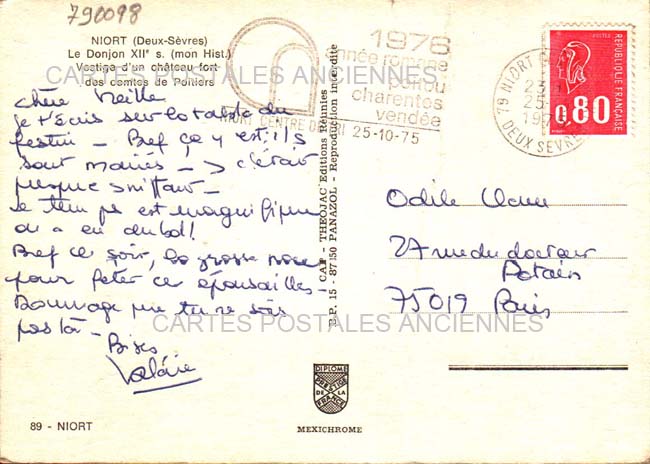 790098
NIORT (Deux-Sèvres)
Le Donjon XIIe s. (mon Hist.)
Vestige d'un château fort
des comtes de Poitiers
CARTES POSTALES ANCIENNES
chère Vieille
je t'écris sur la table du
festin - Bref ça y est, ils
sont mariés -
presque
Le temps est magnifique
on a eu du bol!
Bref ce soir, la grosse
pour fêter ces épousailles
Dommage que tu ne sois
pas là -
Bises
Valérie
89 - NIORT
CAP - THEOJAC Editions Réunies
B.P. 15 - 87350 PANAZOL - Reproduction interdite
1976
année romane
poitou
charentes
vendée
NIORT CENTRE DE TRI 25-10-75
79 NIORT
25-
DEUX SEVRES
POSTES
REPUBLIQUE FRANÇAISE
0,80
Odile
27 rue du docteur
Potain
75019 Paris
CARTES POSTALES ANCIENNES
DIPLOME
PRESTIGE
DE LA
FRANCE
MEXICHROME